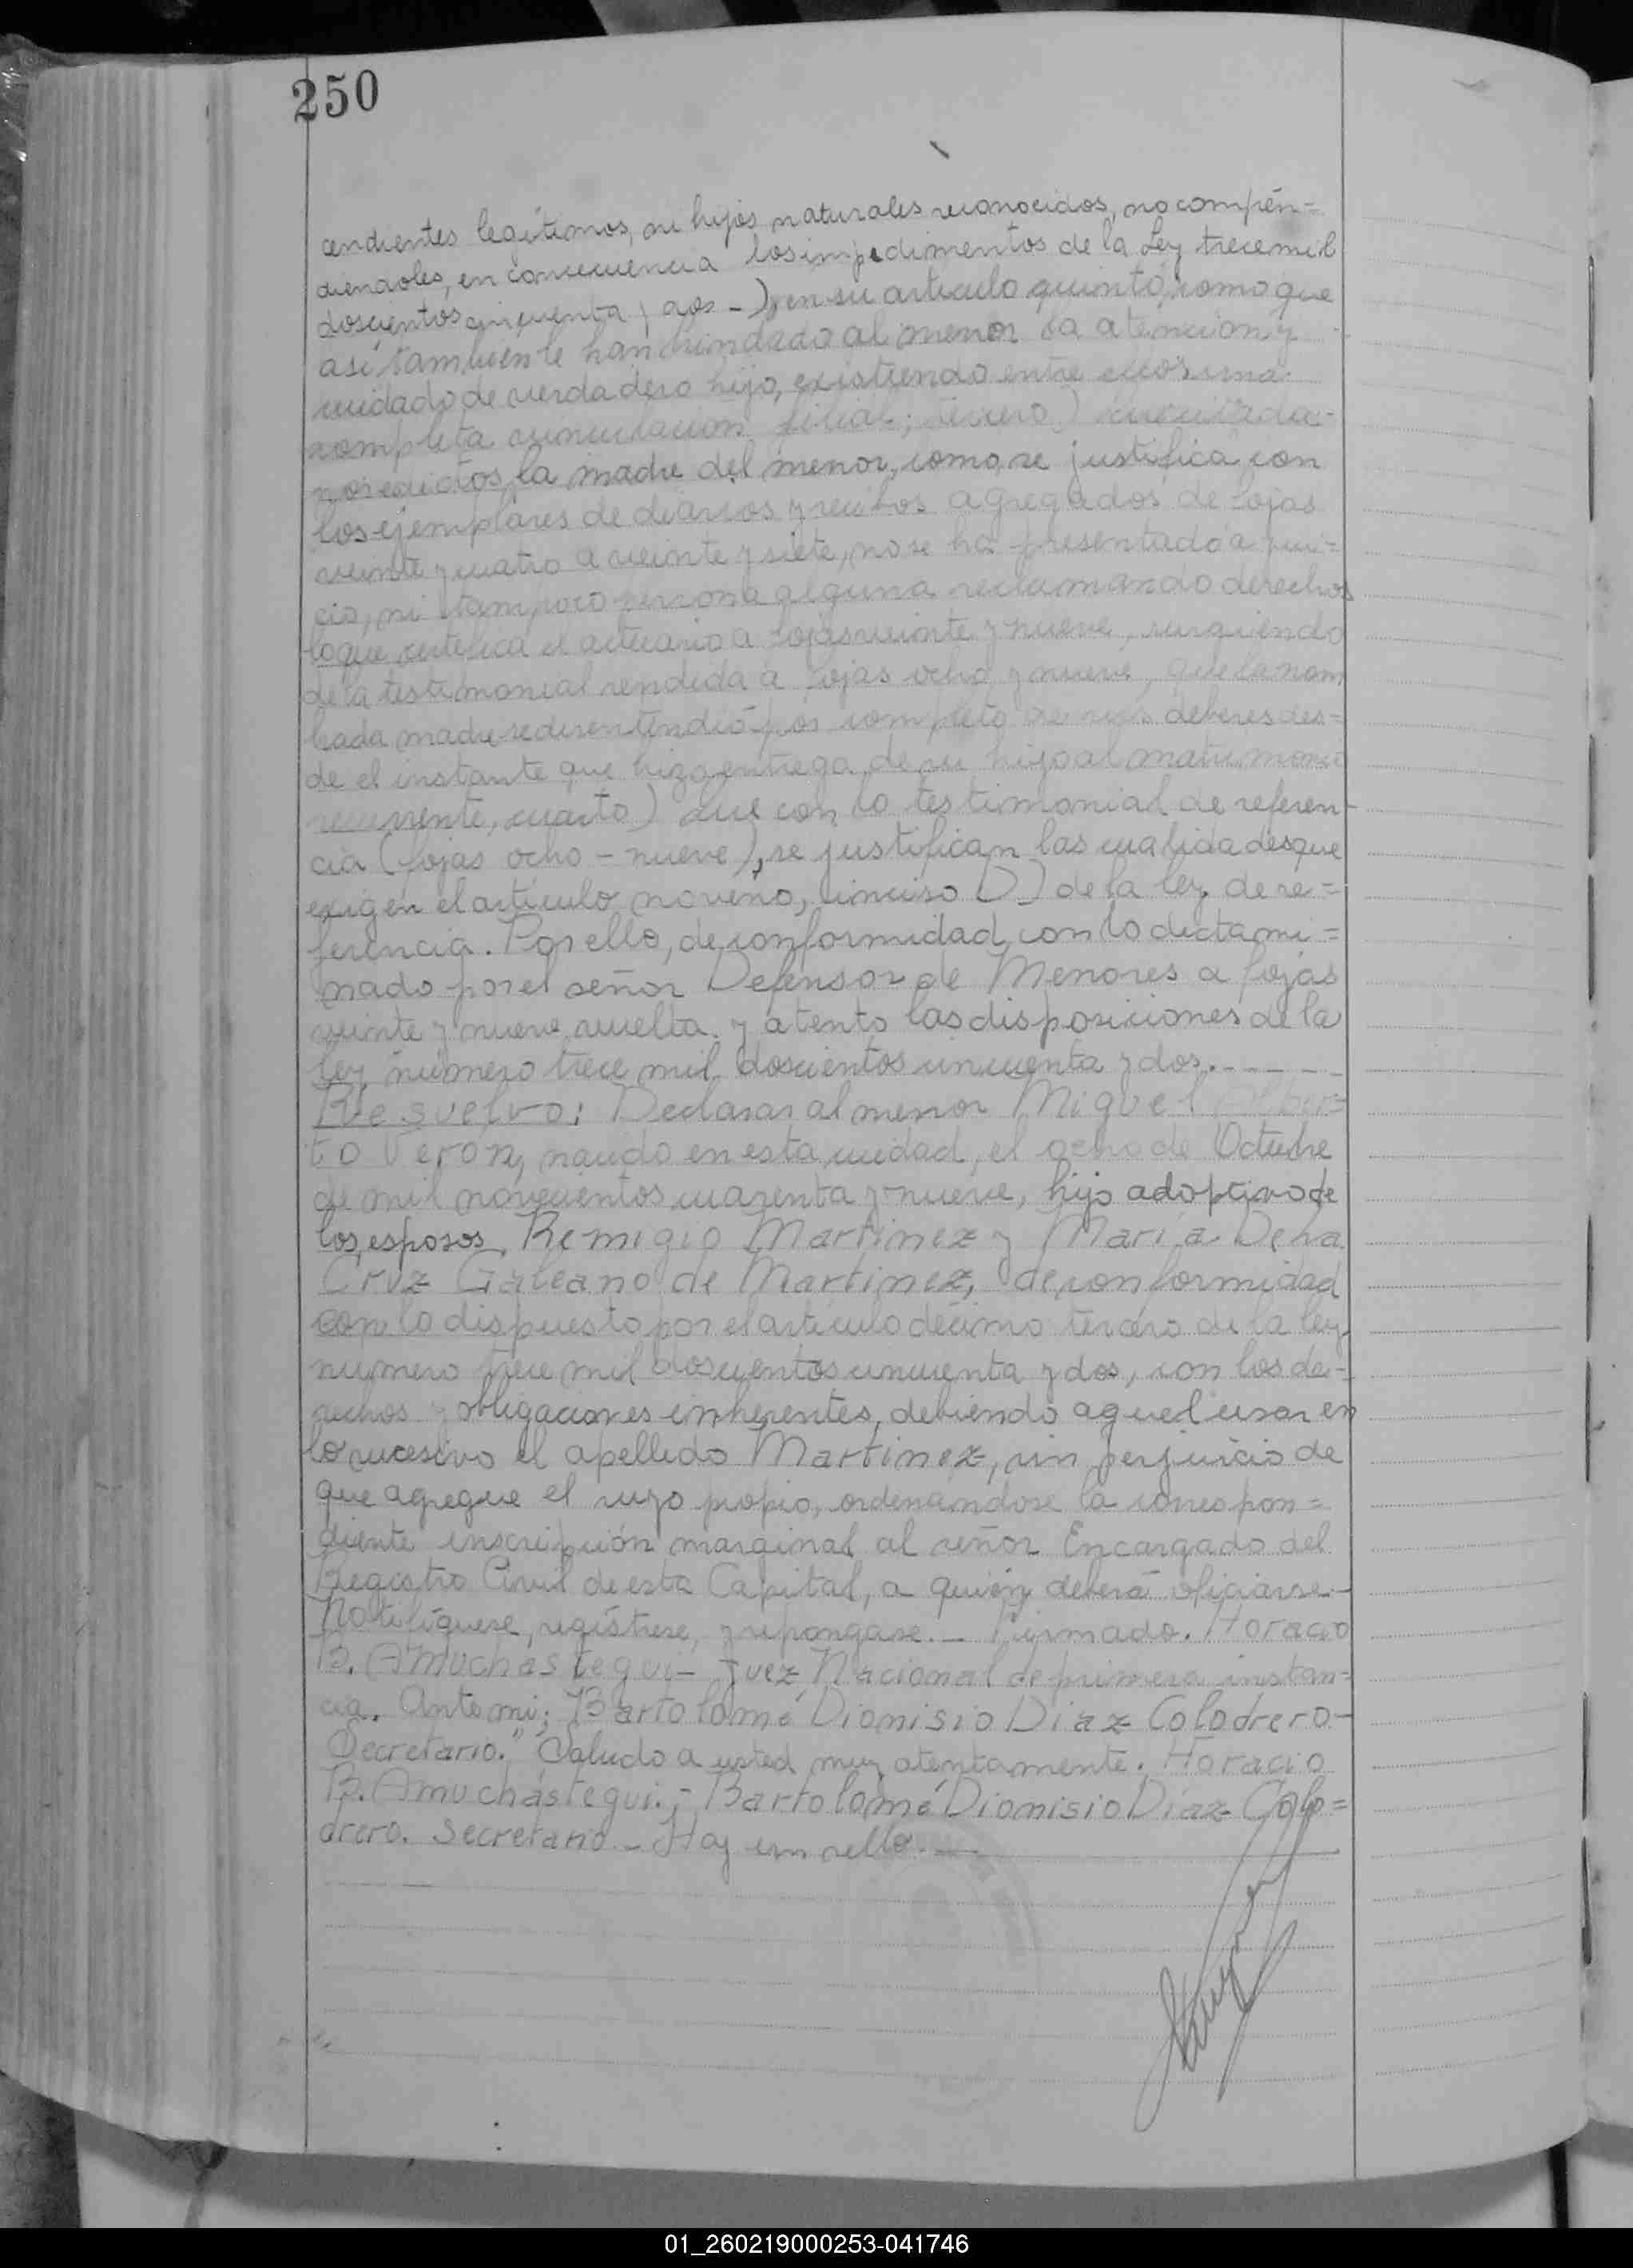 250
cendientes legítimos, ni hijos naturales reconocidos, no compren=
diendoles, en consecuencia los impedimentos de la Ley trece mil
doscientos cincuenta y dos -) en su artículo quinto, como que
así tambien le han brindado al menor la atencion y
cuidado de verdadero hijo, existiendo entre ellos una
completa vinculacion filial; tercero) Que citada
por edictos, la madre del menor, como se justifica con
los ejemplares de diarios y recibos agregados de fojas
veinte y cuatro a veinte y siete, no se ha presentado a jui=
cio, ni tampoco persona alguna reclamando derechos
lo que certifica el actuario a fojas veinte y nueve, surgiendo
de la testimonial rendida a fojas ocho y nueve, que la nom
brada madre se desentendió por completo de sus deberes des=
de el instante que hizo entrega de su hijo al matrimonio
recurrente, cuarto) Que con la testimonial de referen-
cia (fojas ocho - nueve), se justifican las cualidades que
exigen el artículo noveno, inciso D) de la ley de re=
ferencia. Por ello, de conformidad con lo dictami=
nado por el señor Defensor de Menores a fojas
veinte y nueve vuelta y atento las disposiciones de la
ley número trece mil doscientos cincuenta y dos.------
Resuelvo: Declarar al menor Miguel Alber=
to Verón, nacido en esta ciudad, el ocho de Octubre
de mil novecientos cuarenta y nueve, hijo adoptivo de
los esposos Remigio Martinez y María De la
Cruz Galeano de Martinez, de conformidad
con lo dispuesto por el artículo décimo tercero de la ley
numero trece mil doscientos cincuenta y dos, con los de-
rechos y obligaciones inherentes, debiendo aquel usar en
lo sucesivo el apellido Martinez, sin perjuicio de
que agregue el suyo propio, ordenandose la correspon=
diente inscripción marginal al señor Encargado del
Registro Civil de esta Capital, a quién deberá oficiarse-
Notifíquese, regístrese, y repongase.- Firmado. Horacio
B. Amuchastegui- Juez Nacional de primera instan=
cia. Ante mi; Bartolomé Dionisio Diaz Colodrero-
Secretario." Saludo a usted muy atentamente. Horacio
B. Amuchástegui.- Bartolomé Dionisio Diaz Colo=
drero. Secretario.- Hay un sello.-
01_260219000253-041746